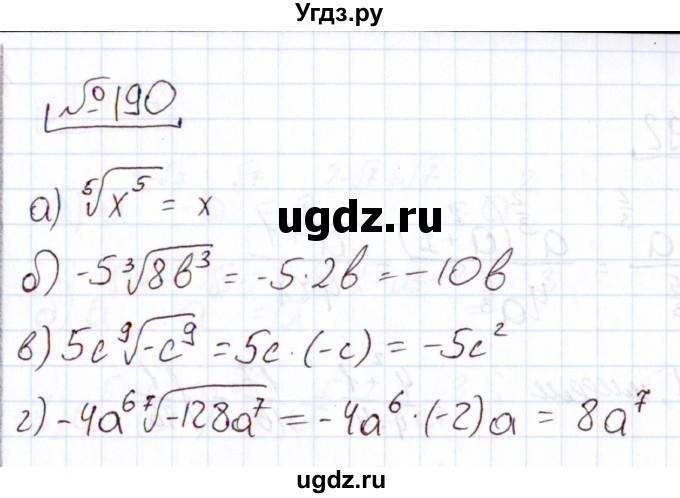 Угдз.ру
№190
а) ⁵√x⁵ = x
б) -5 ³√8b³ = -5·2b = -10b
в) 5c ⁹√-c⁹ = 5c·(-c) = -5c²
г) -4a⁶ ⁷√-128a⁷ = -4a⁶·(-2)a = 8a⁷
ugdz.ru
ugdz.ru
ugdz.ru